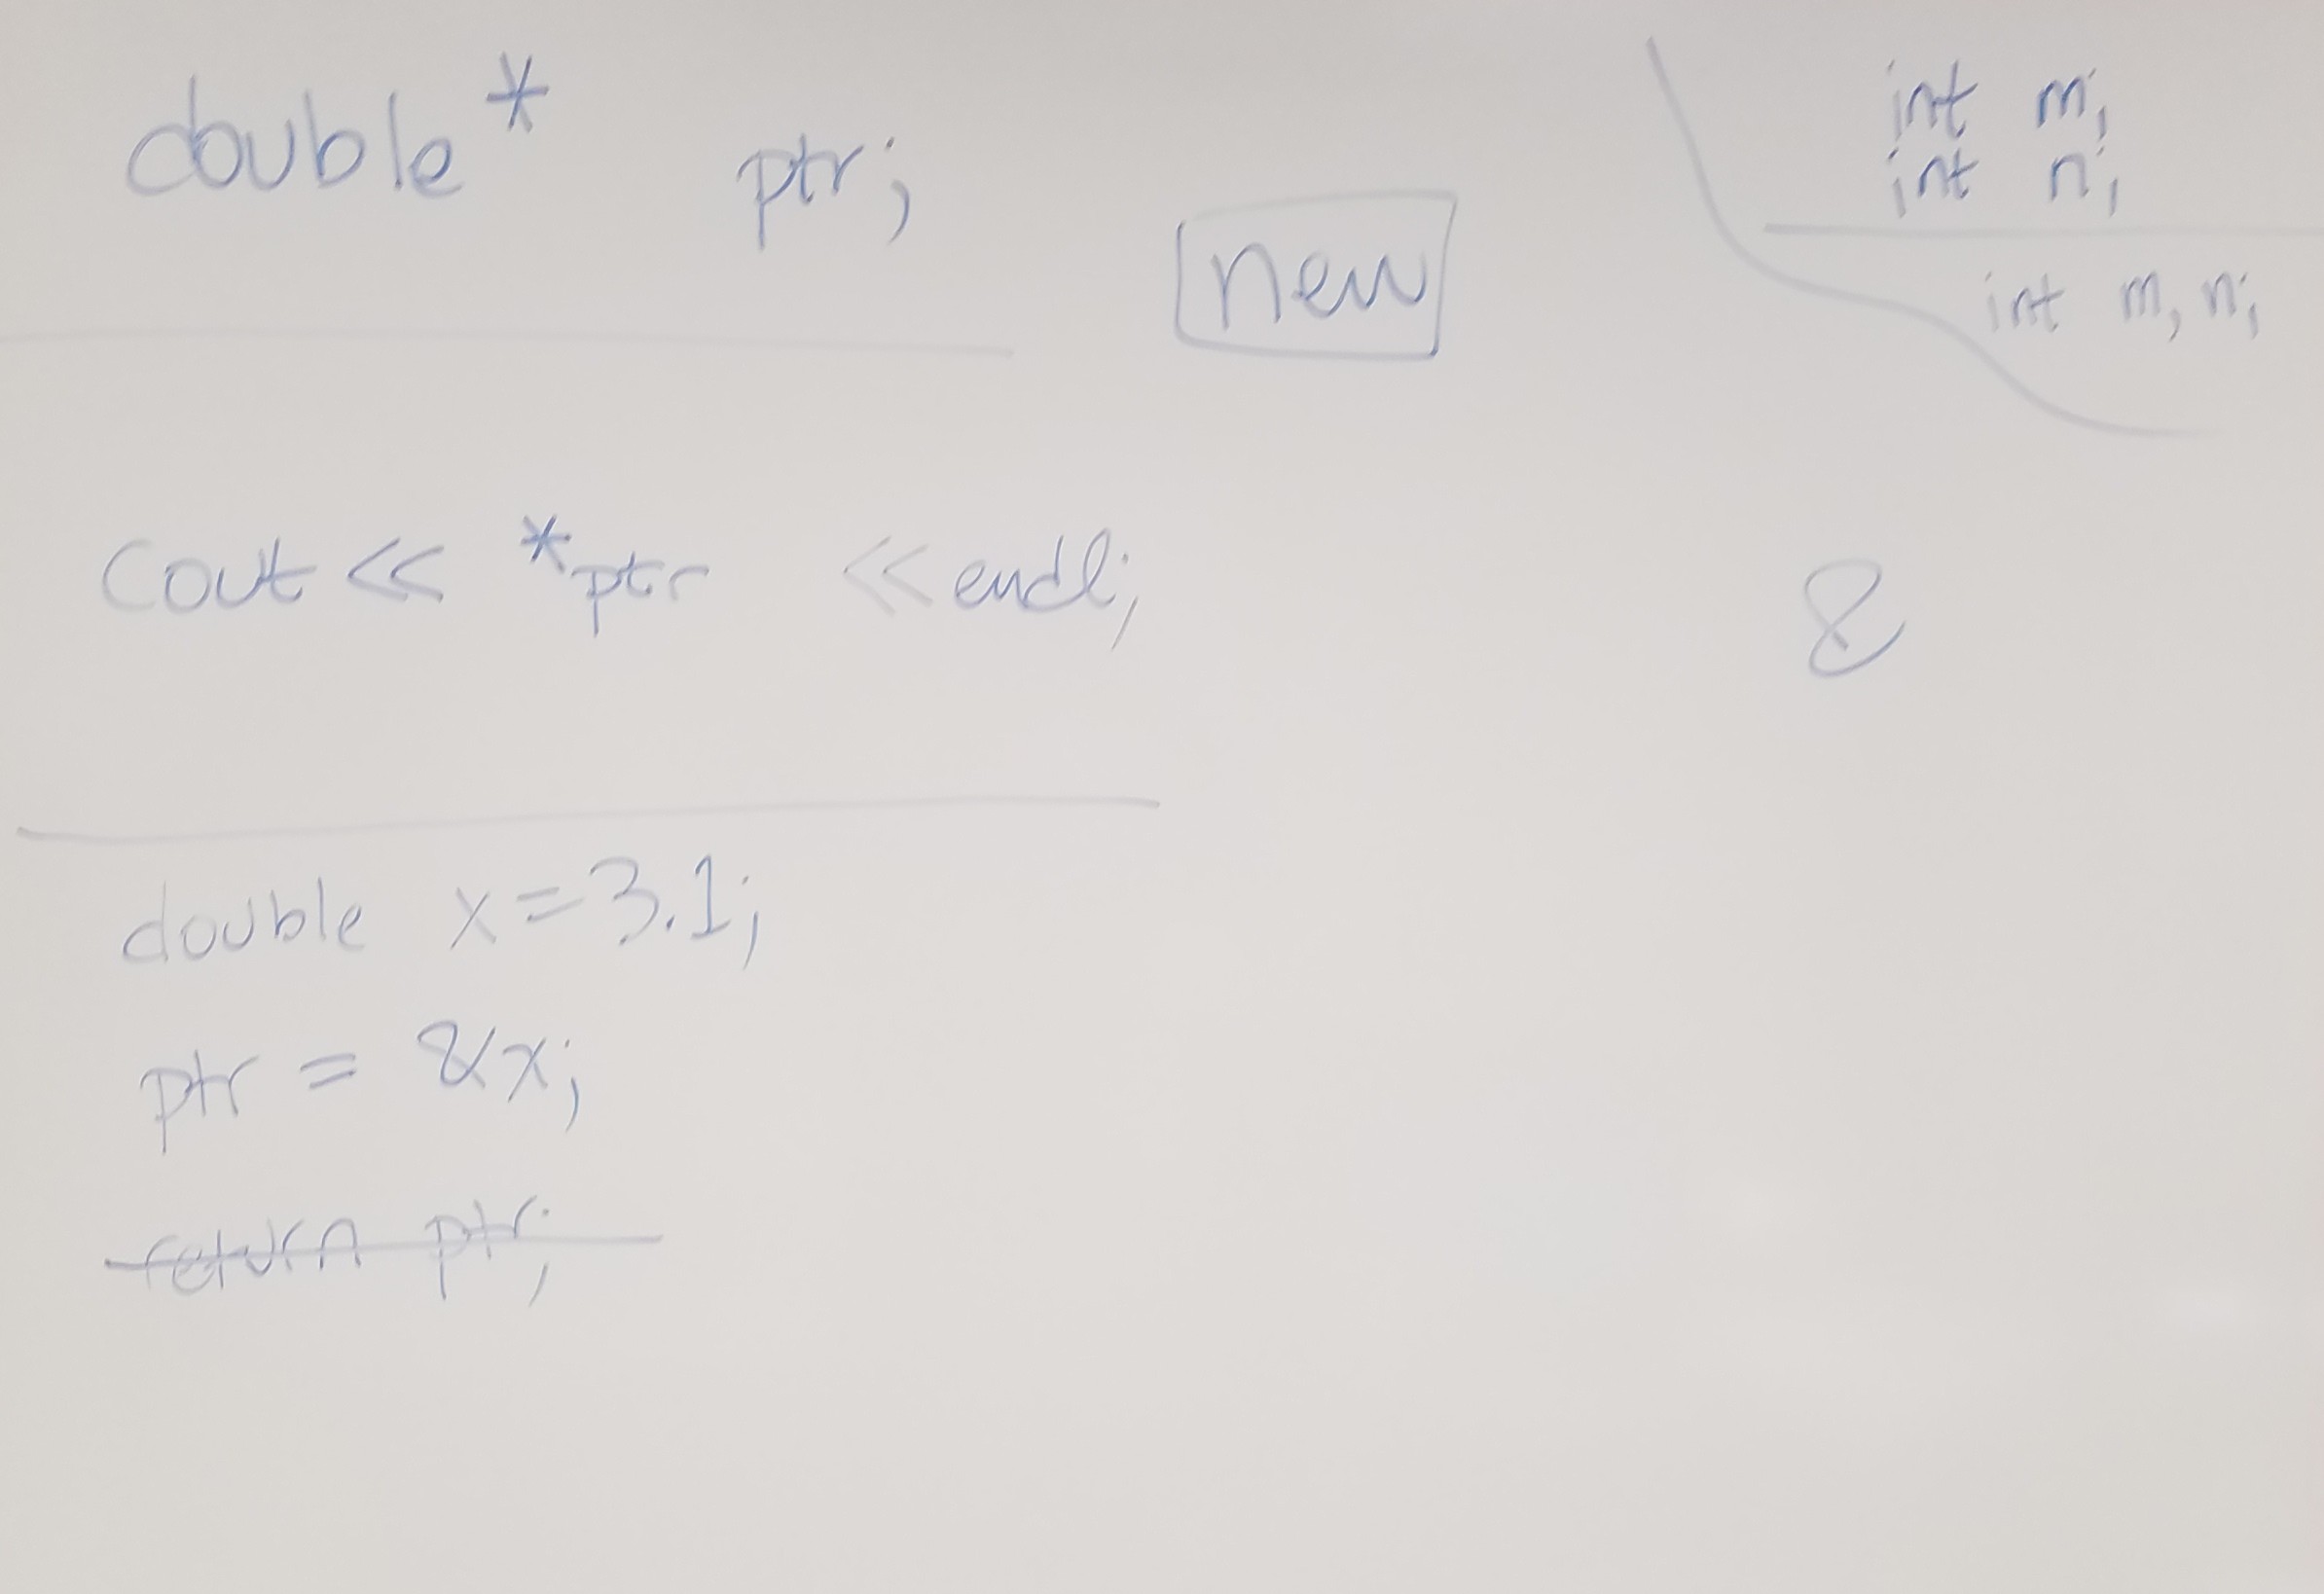 double* ptr;
new
int m;
int n;
int m, n;
cout << *ptr << endl;
&
double x=3.1;
ptr = &x;
return ptr;